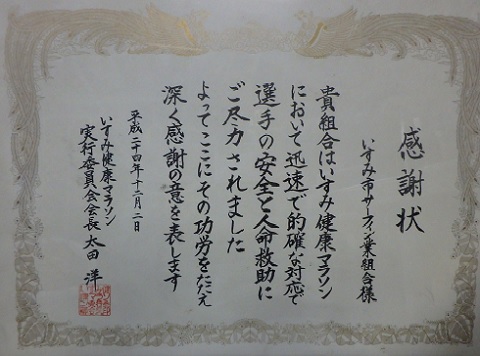 感謝状
いすみ市サーフィン業組合様
貴組合はいすみ健康マラソン
において迅速で的確な対応で
選手の安全と人命救助に
ご尽力されました
よってここにその功労をたたえ
深く感謝の意を表します
平成二十四年十二月二日
いすみ健康マラソン
実行委員会会長 太田 洋